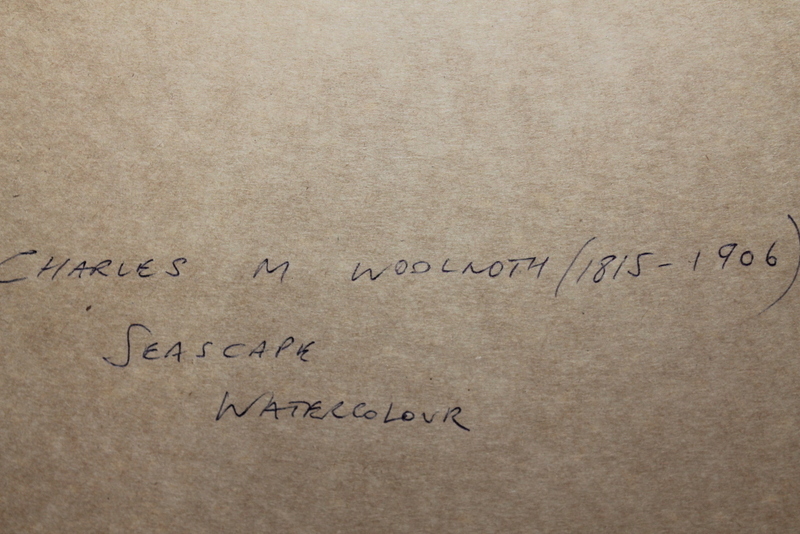 CHARLES M WOOLNOTH (1815-1906)
SEASCAPE
WATERCOLOUR